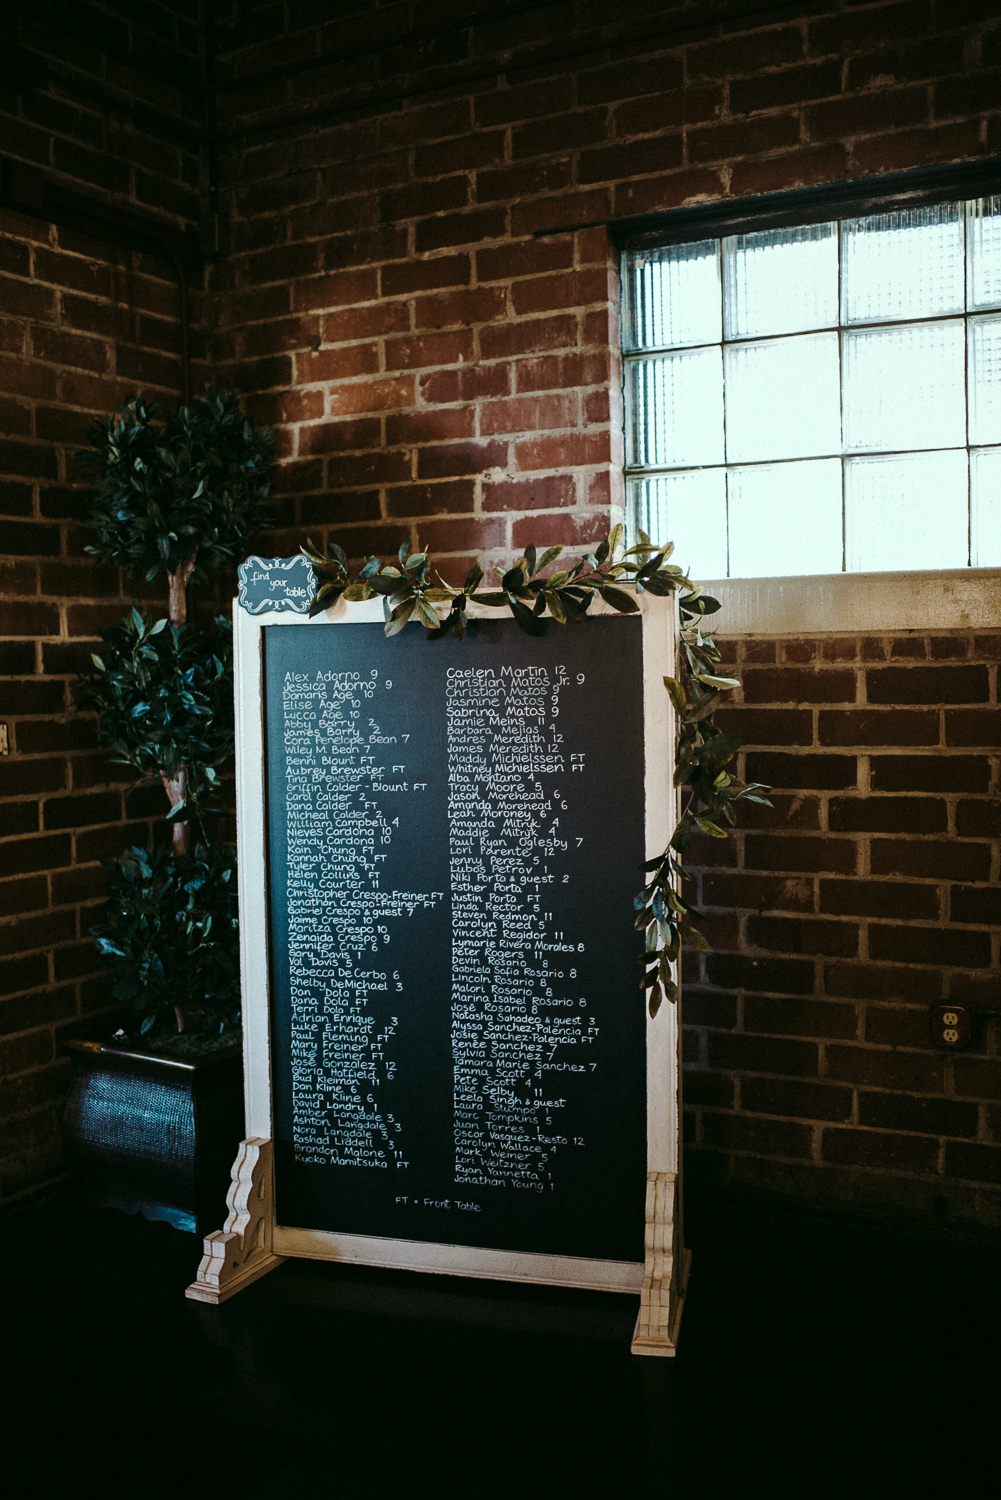 find your table
Alex Adorno 9
Jessica Adorno 9
Damaris Age 10
Elise Age 10
Lucca Age 10
Abby Barry 2
James Barry 2
Cora Penelope Bean 7
Wiley M. Bean 7
Benni Blount FT
Aubrey Brewster FT
Tina Brewster FT
Griffin Calder-Blount FT
Carol Calder 2
Dana Calder FT
Micheal Calder 2
William Campbell 4
Nieves Cardona 10
Wendy Cardona 10
Kain Chung FT
Kannah Chung FT
Tyler Chung FT
Helen Collins FT
Kelly Courter 11
Christopher Crespo-Freiner FT
Jonathan Crespo-Freiner FT
Gabriel Crespo & guest 7
Jaime Crespo 10
Maritza Crespo 10
Zenaida Crespo 9
Jennifer Cruz 6
Gary Davis 1
Val Davis 5
Rebecca DeCerbo 6
Shelby DeMichael 3
Dan Dola FT
Dana Dola FT
Terri Dola FT
Adrian Enrique 3
Luke Erhardt 12
Paul Fleming FT
Mary Freiner FT
Mike Freiner FT
José González 12
Gloria Hatfield 6
Bud Kleiman 11
Dan Kline 6
Laura Kline 6
David Landry 1
Amber Langdale 3
Ashton Langdale 3
Nora Langdale 3
Rashad Liddell 3
Brandon Malone 11
Kyoko Mamitsuka FT
Caelen Martin 12
Christian Matos Jr. 9
Christian Matos 9
Jasmine Matos 9
Sabrina Matos 9
Jamie Meins 11
Barbara Mejias 4
Andres Meredith 12
James Meredith 12
Maddy Michielssen FT
Whitney Michielssen FT
Alba Montano 4
Tracy Moore 5
Jason Morehead 6
Amanda Morehead 6
Leah Moroney 6
Amanda Mitryk 4
Maddie Mitryk 4
Paul Ryan Oglesby 7
Lori Parente 12
Jenny Perez 5
Lubos Petrov 1
Niki Porta & guest 2
Esther Porta 1
Justin Porta FT
Linda Rector 5
Steven Redmon 11
Carolyn Reed 5
Vincent Regidor 11
Lymarie Rivera Morales 8
Peter Rogers 11
Devin Rosario 8
Gabriela Sofia Rosario 8
Lincoln Rosario 8
Malori Rosario 8
Marina Isabel Rosario 8
José Rosario 8
Natasha Sahadeo & guest 3
Alyssa Sanchez-Palencia FT
Josie Sanchez-Palencia FT
Renée Sanchez 7
Sylvia Sanchez 7
Tamara Marie Sanchez 7
Emma Scott 4
Pete Scott 4
Mike Selby 11
Leela Singh & guest
Laura Stumpo 1
Marc Tompkins 5
Juan Torres 1
Oscar Vasquez-Resto 12
Carolyn Wallace 4
Mark Weiner 5
Lori Weitzner 5
Ryan Yannetta 1
Jonathan Young 1
FT = Front Table